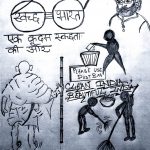 स्वच्छ भारत
एक कदम स्वच्छता
की ओर
PLEASE
USE
DUSTBIN
CLEAN INDIA
BEAUTIFUL